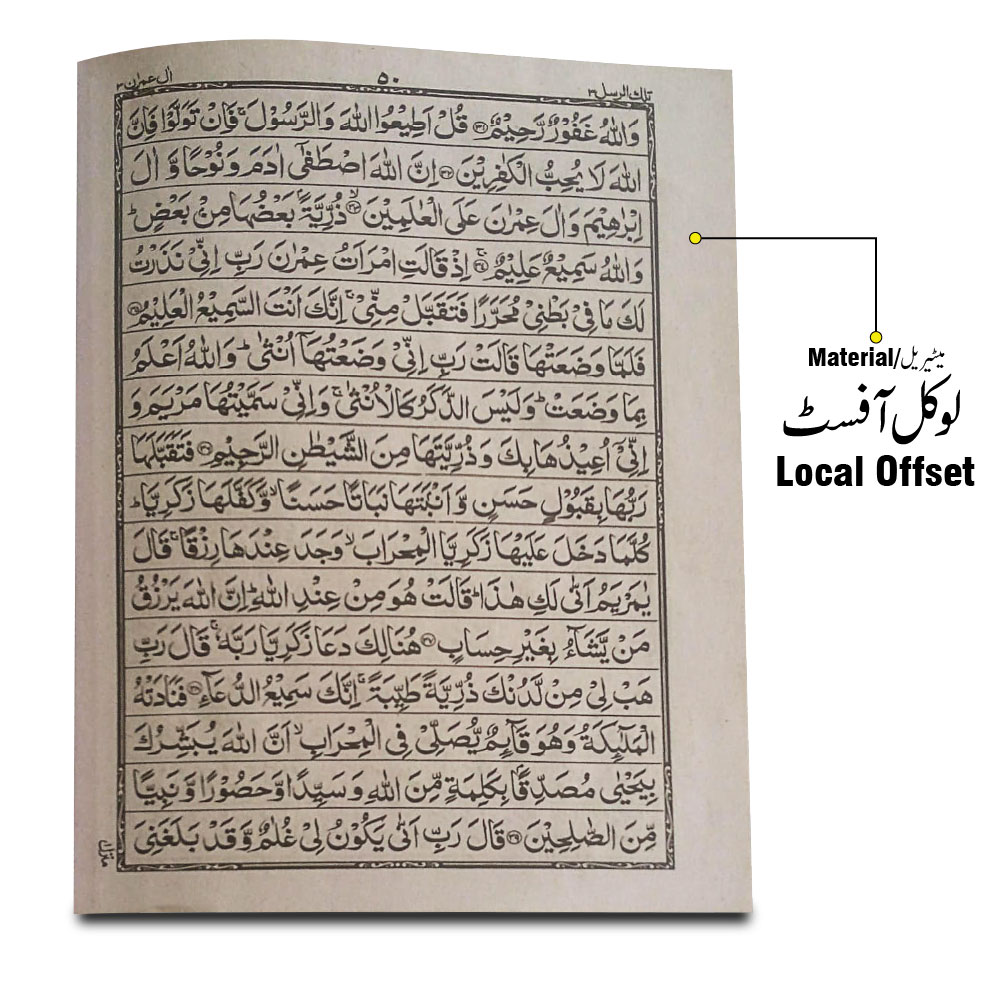 تلك الرسل ٣
٥٠
اٰل عمرٰن ٣
وَاللّٰهُ غَفُوْرٌ رَّحِيْمٌ ﴿٣١﴾ قُلْ اَطِيْعُوا اللّٰهَ وَالرَّسُوْلَ ۚ فَاِنْ تَوَلَّوْا فَاِنَّ
اللّٰهَ لَا يُحِبُّ الْكٰفِرِيْنَ ﴿٣٢﴾ اِنَّ اللّٰهَ اصْطَفٰۤى اٰدَمَ وَنُوْحًا وَّ اٰلَ
اِبْرٰهِيْمَ وَاٰلَ عِمْرٰنَ عَلَى الْعٰلَمِيْنَ ﴿٣٣﴾ ۙ ذُرِّيَّةًۢ بَعْضُهَا مِنْۢ بَعْضٍ ؕ
وَاللّٰهُ سَمِيْعٌ عَلِيْمٌ ﴿٣٤﴾ ۚ اِذْ قَالَتِ امْرَاَتُ عِمْرٰنَ رَبِّ اِنِّيْ نَذَرْتُ
لَكَ مَا فِيْ بَطْنِيْ مُحَرَّرًا فَتَقَبَّلْ مِنِّيْ ۚ اِنَّكَ اَنْتَ السَّمِيْعُ الْعَلِيْمُ ﴿٣٥﴾
فَلَمَّا وَضَعَتْهَا قَالَتْ رَبِّ اِنِّيْ وَضَعْتُهَاۤ اُنْثٰى ؕ وَاللّٰهُ اَعْلَمُ
بِمَا وَضَعَتْ ؕ وَلَيْسَ الذَّكَرُ كَالْاُنْثٰى ۚ وَاِنِّيْ سَمَّيْتُهَا مَرْيَمَ وَ
اِنِّيْۤ اُعِيْذُهَا بِكَ وَذُرِّيَّتَهَا مِنَ الشَّيْطٰنِ الرَّجِيْمِ ﴿٣٦﴾ فَتَقَبَّلَهَا
رَبُّهَا بِقَبُوْلٍ حَسَنٍ وَّ اَنْۢبَتَهَا نَبَاتًا حَسَنًا ۙ وَّكَفَّلَهَا زَكَرِيَّا ؕ
كُلَّمَا دَخَلَ عَلَيْهَا زَكَرِيَّا الْمِحْرَابَ ۙ وَجَدَ عِنْدَهَا رِزْقًا ۚ قَالَ
يٰمَرْيَمُ اَنّٰى لَكِ هٰذَا ؕ قَالَتْ هُوَ مِنْ عِنْدِ اللّٰهِ ؕ اِنَّ اللّٰهَ يَرْزُقُ
مَنْ يَّشَآءُ بِغَيْرِ حِسَابٍ ﴿٣٧﴾ هُنَالِكَ دَعَا زَكَرِيَّا رَبَّهٗ ۚ قَالَ رَبِّ
هَبْ لِيْ مِنْ لَّدُنْكَ ذُرِّيَّةً طَيِّبَةً ۚ اِنَّكَ سَمِيْعُ الدُّعَآءِ ﴿٣٨﴾ فَنَادَتْهُ
الْمَلٰٓئِكَةُ وَهُوَ قَآئِمٌ يُّصَلِّيْ فِي الْمِحْرَابِ ۙ اَنَّ اللّٰهَ يُبَشِّرُكَ
بِيَحْيٰى مُصَدِّقًۢا بِكَلِمَةٍ مِّنَ اللّٰهِ وَسَيِّدًا وَّحَصُوْرًا وَّنَبِيًّا
مِّنَ الصّٰلِحِيْنَ ﴿٣٩﴾ قَالَ رَبِّ اَنّٰى يَكُوْنُ لِيْ غُلٰمٌ وَّقَدْ بَلَغَنِيَ
منزل
Material/میٹیریل
لوکل آفسٹ
Local Offset